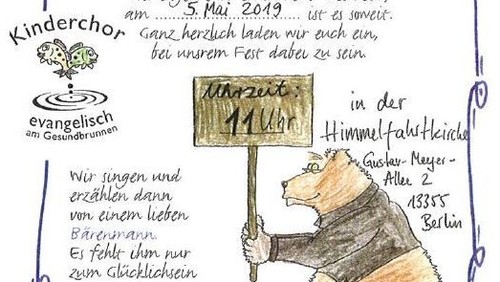 am 5. Mai 2019 ist es soweit.
Ganz herzlich laden wir euch ein,
bei unsrem Fest dabei zu sein.
Kinderchor
evangelisch
am Gesundbrunnen
Uhrzeit:
11 Uhr
in der
Himmelfahrtkirche
Gustav-Meyer-
Allee 2
13355
Berlin
Wir singen und
erzählen dann
von einem lieben
Bärenmann.
Es fehlt ihm nur
zum Glücklichsein